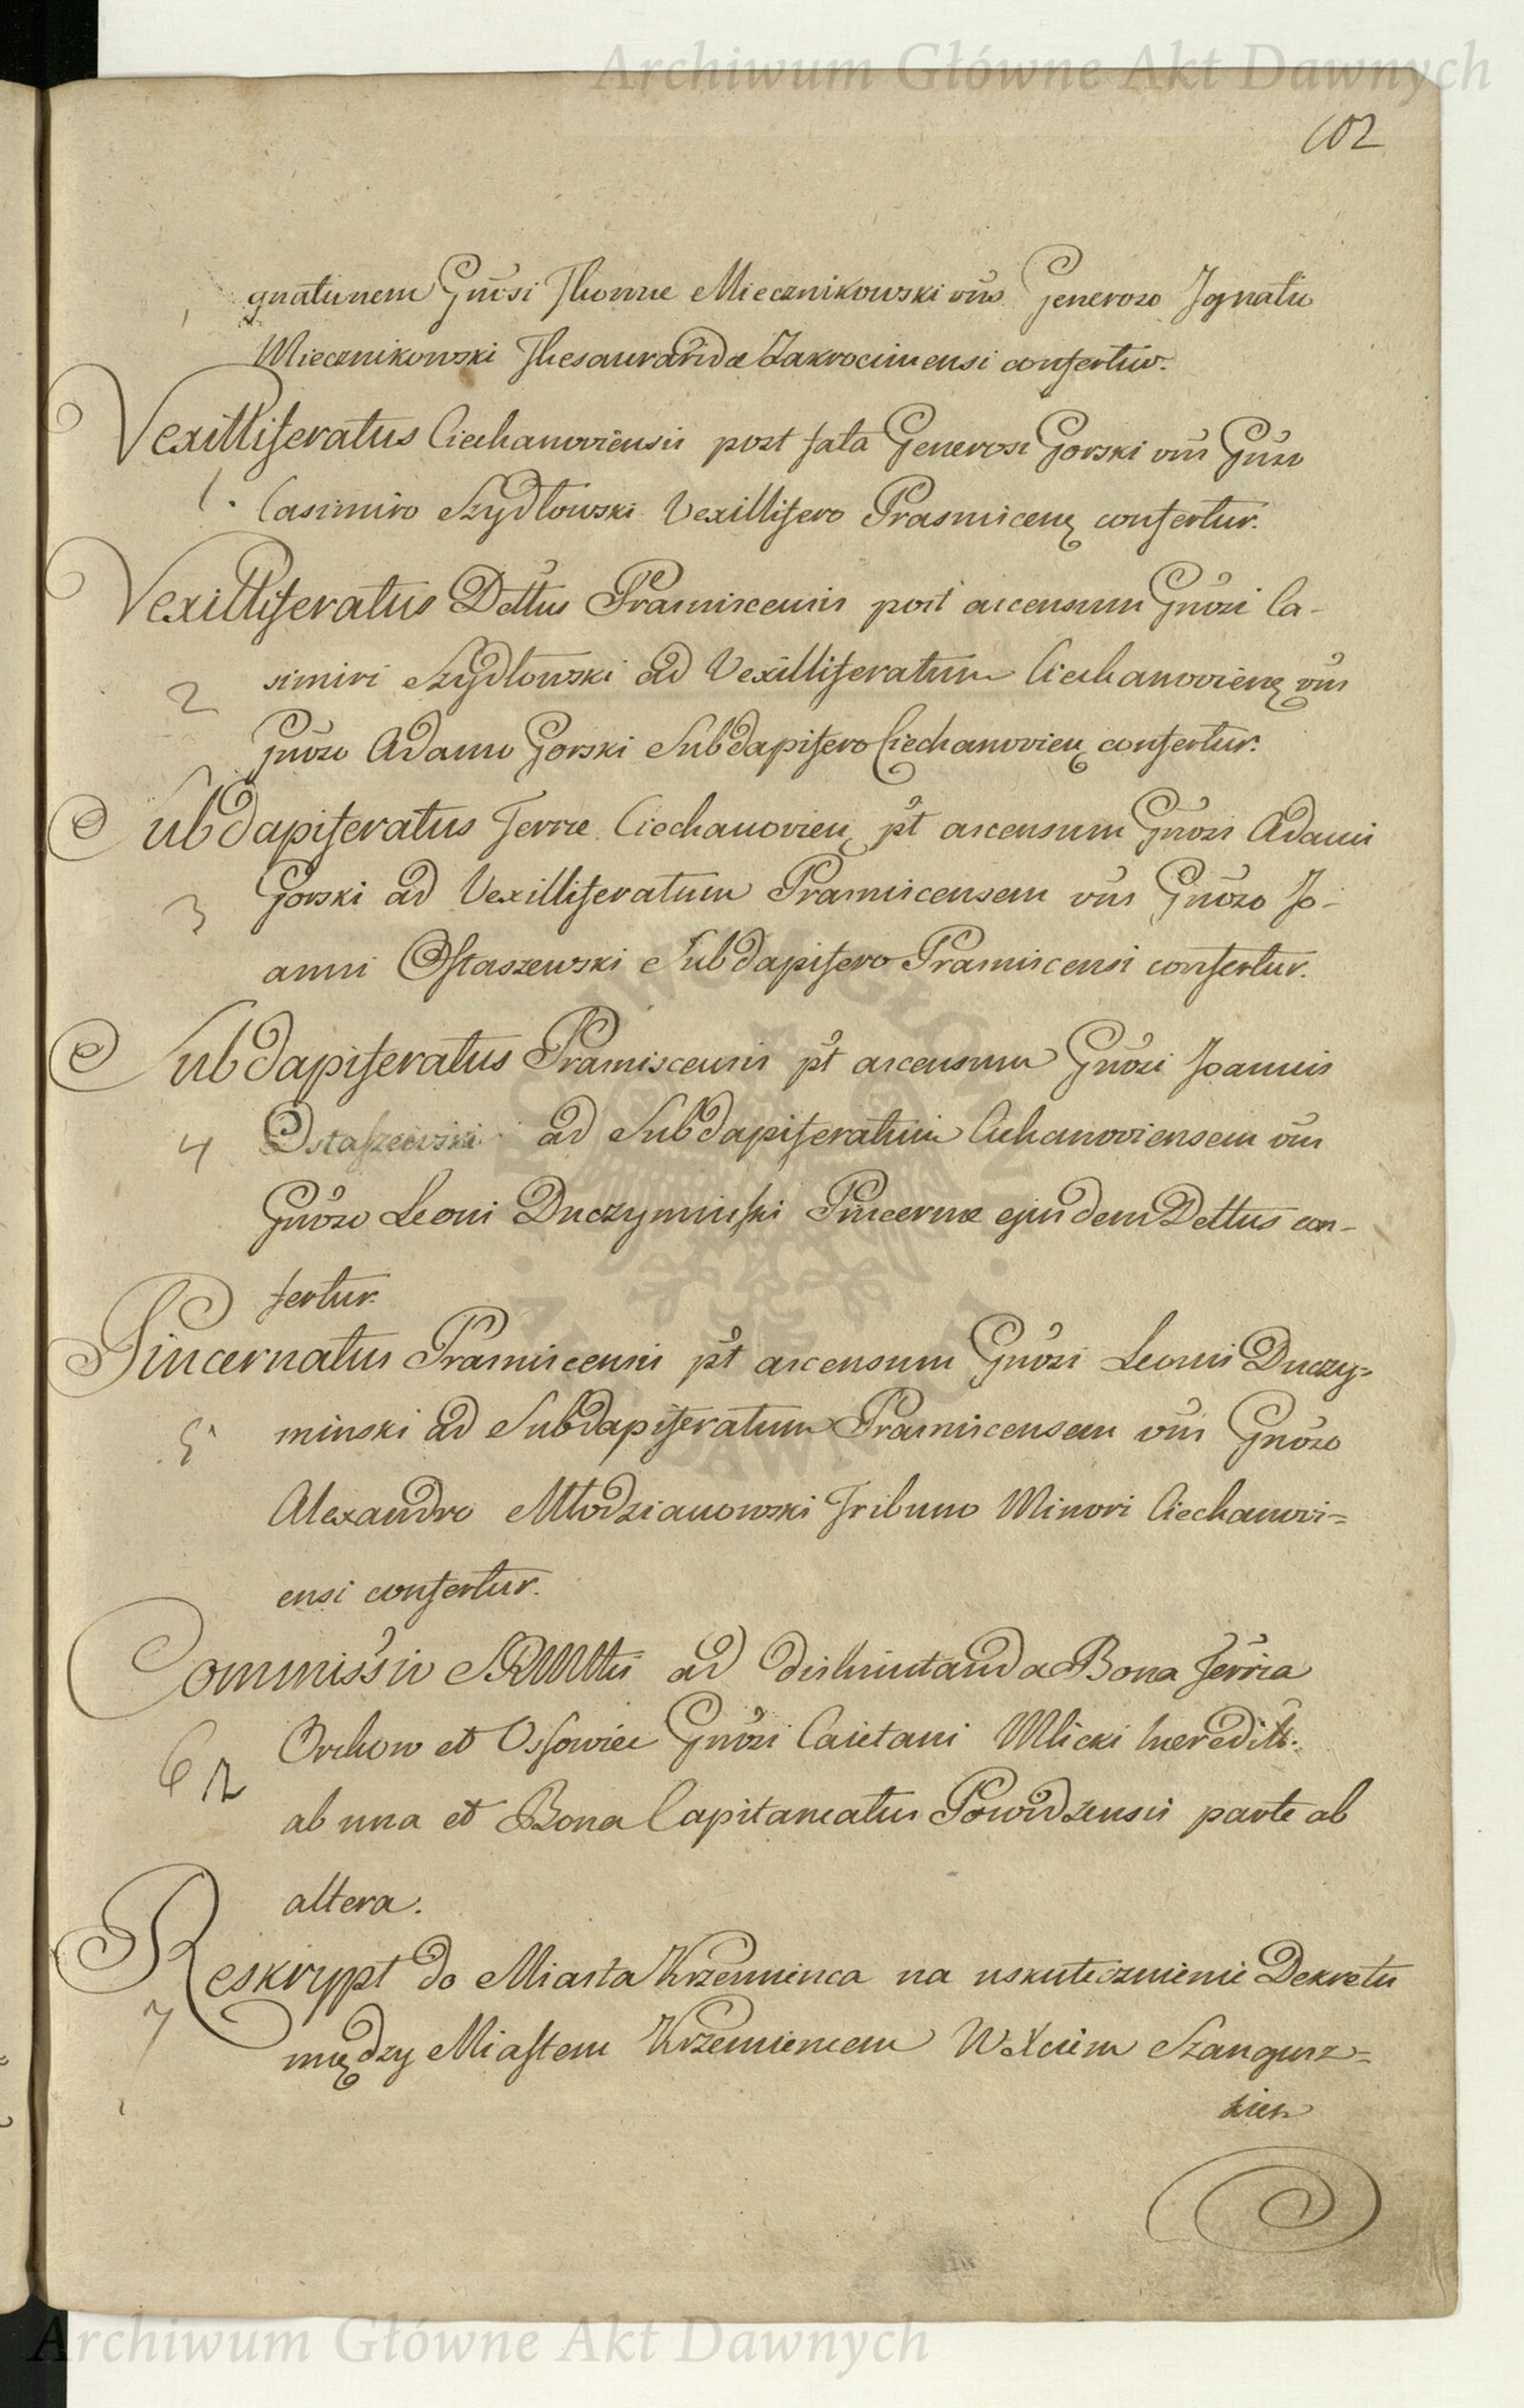 Archiwum Główne Akt Dawnych
102
gnationem Gnosi Thomae Miecznikowski vus Generoso Ignatio
Miecznikowski Thesaurarida Zakrocimensi confertur.
Vexilliferatus Ciechanoviensis post fata Generosi Gorski vus Gnoso
1. Casimiro Szydłowski Vexillifero Prasnicen confertur.
Vexilliferatus Dttus Prasniscensis post ascensum Gnosi Ca-
simiri Szydłowski ad Vexilliferatum Ciechanovien vus
2
Gnoso Adamo Gorski Subdapifero Ciechanovien confertur.
Subdapiferatus Terrae Ciechanovien pt ascensum Gnosi Adami
3 Gorski ad Vexilliferatum Prasniscensem vus Gnoso Jo-
anni Ostaszewski Subdapifero Prasniscensi confertur.
Subdapiferatus Prasniscensis pt ascensum Gnosi Joannis
4 Ostaszewski ad Subdapiferatum Cichanoviensem vus
Gnoso Leoni Duczyminski Pincernae ejusdem Dttus con-
fertur.
Pincernatus Prasniscensis pt ascensum Gnosi Leonis Duczy=
5 minski ad Subdapiferatum Prasniscensem vus Gnoso
Alexandro Młodzianowski Tribuno Minori Ciechanovi=
ensi confertur.
Commissio SRMttis ad dislimitanda Bona Terria
6 Orchow et Ossowiec Gnosi Caietani Mlicki haeredit.
ab una et Bona Capitaneatus Powidzensis parte ab
altera.
Reskrypt do Miasta Krzemienca na uskutecznienie Dekretu
7 między Miastem Krzemiencem W. Xciem Szangusz=
kiem
Archiwum Główne Akt Dawnych